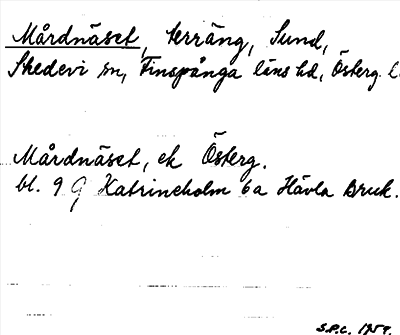 Mårdnäset, terräng, Sund,
Skedevi sn, Finspånga läns hd, Österg. l
Mårdnäset, ek Österg.
bl. 9 G Katrineholm 6a Hävla Bruk.
S.P.C. 1959.